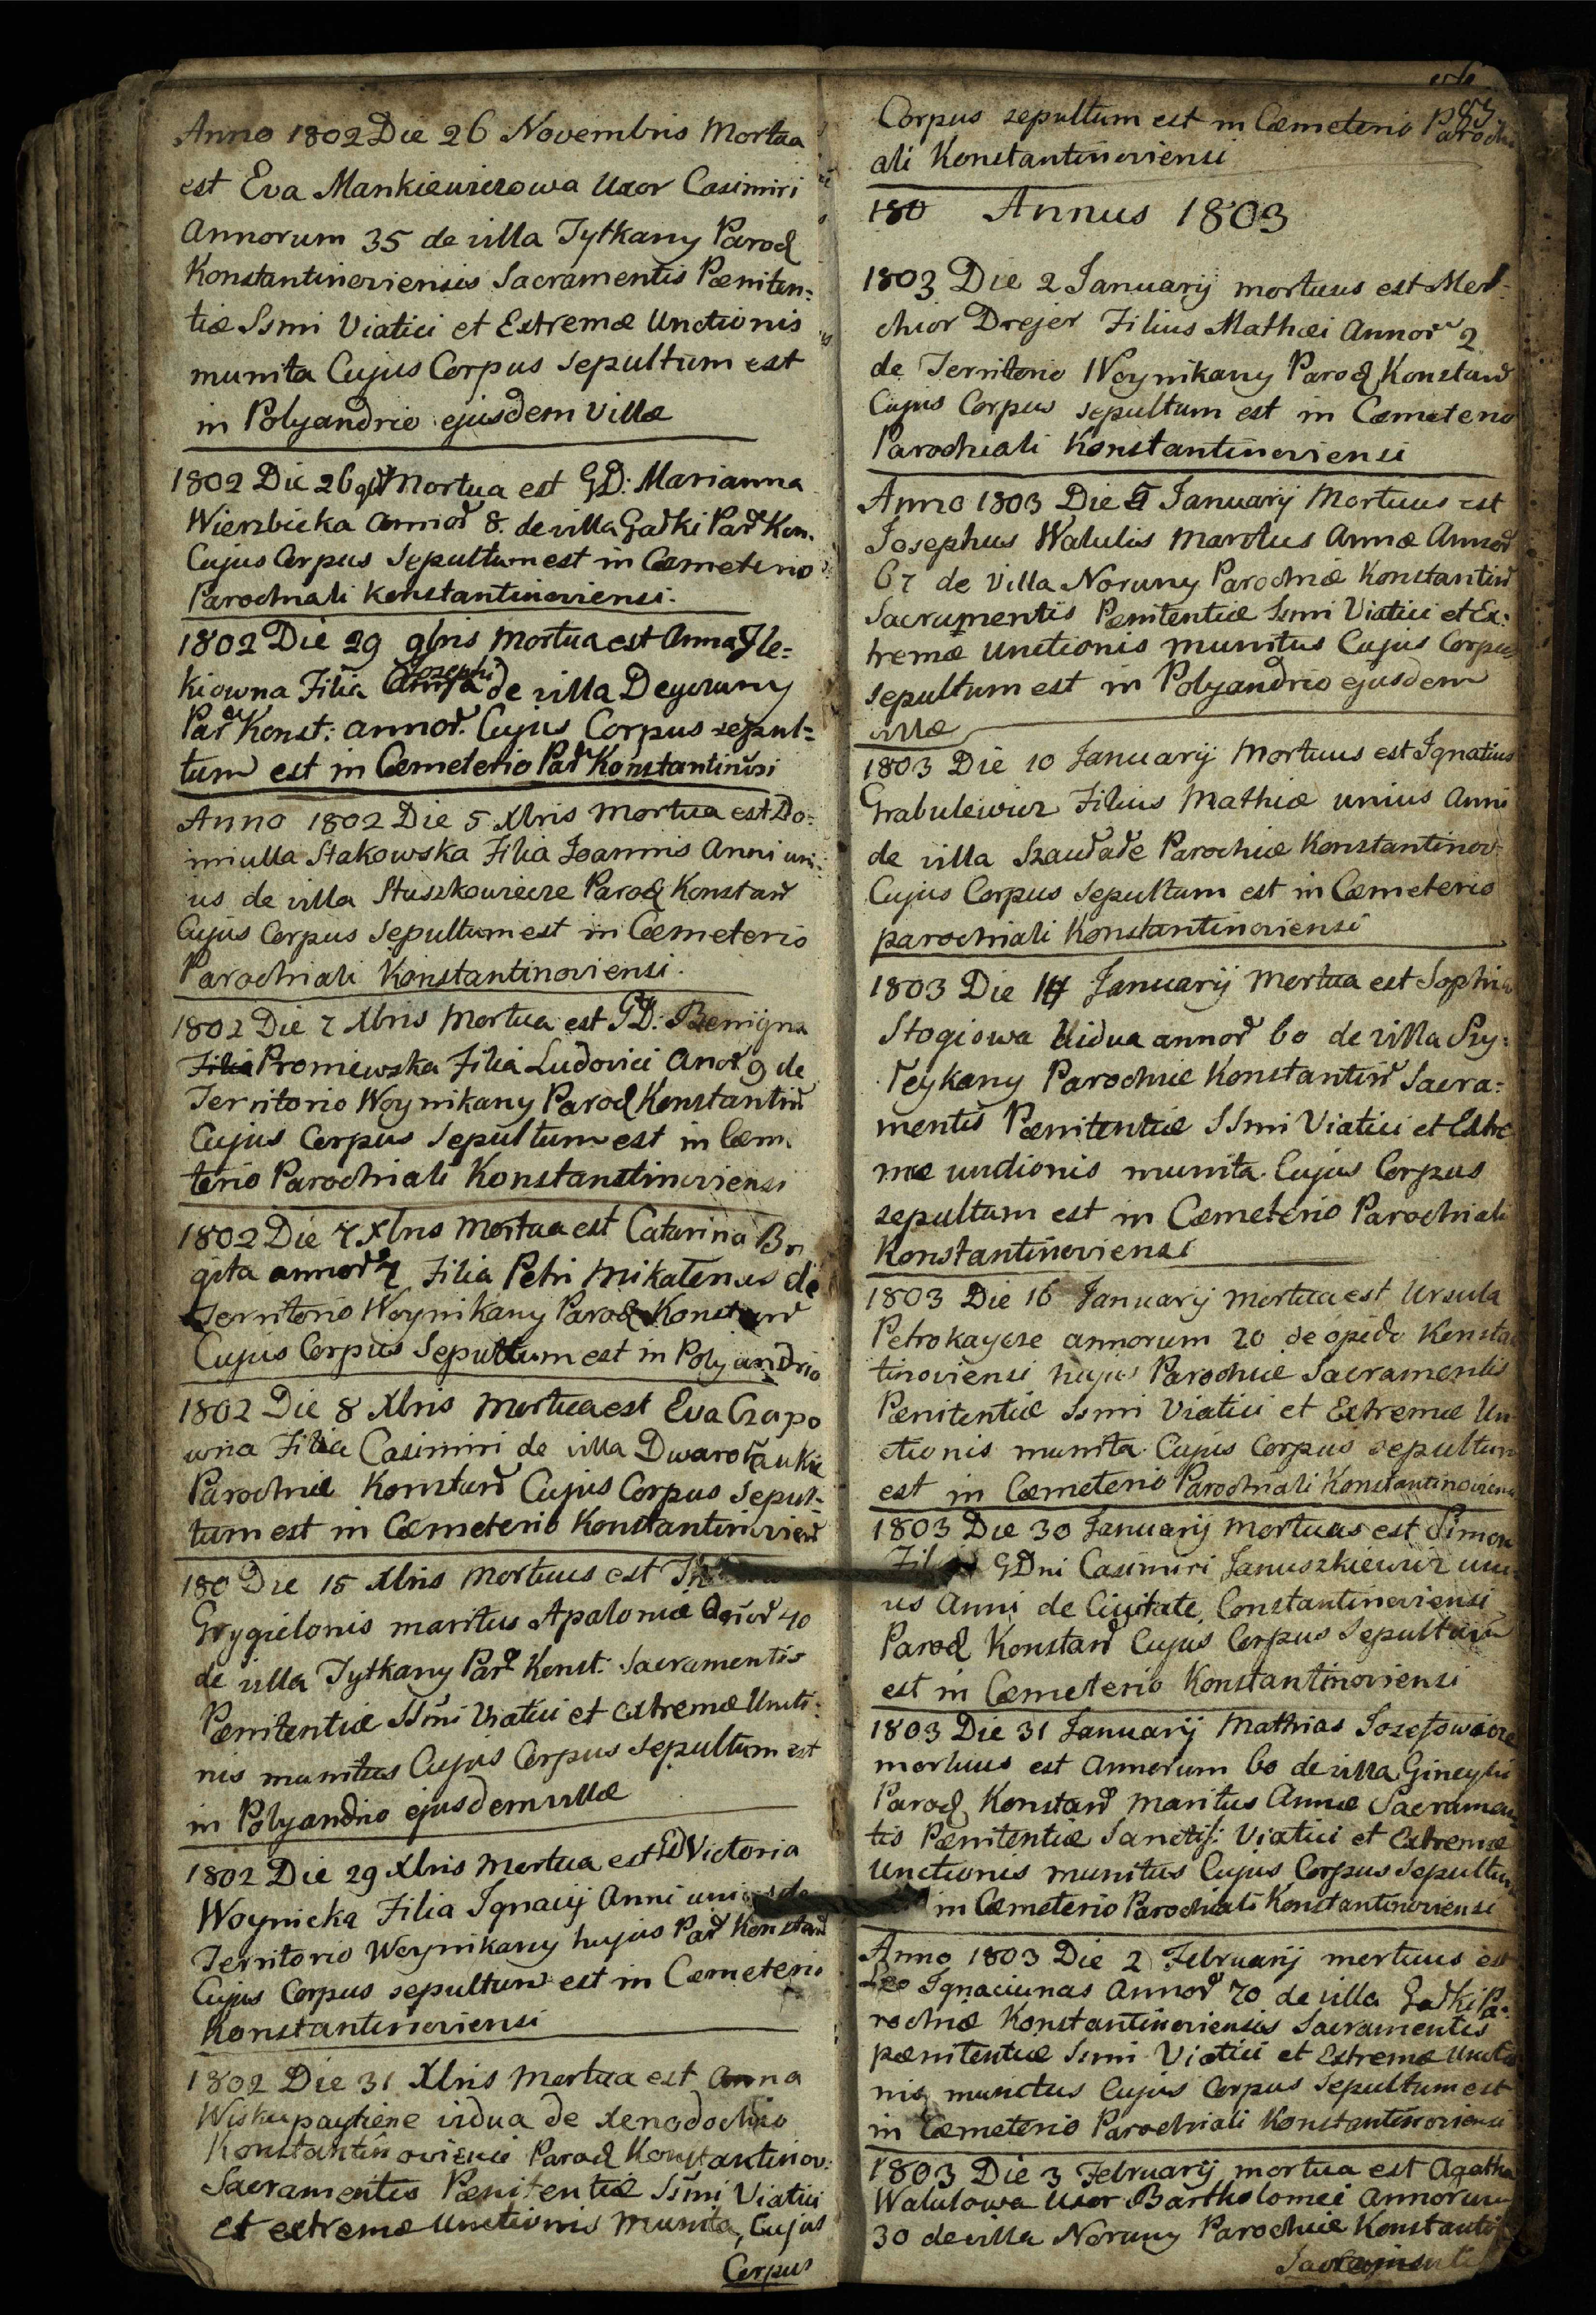 Anno 1802 Die 26 Novembris Mortua
est Eva Mankiewiczowa Uxor Casimiri
Annorum 35 de villa Tytkany Paroch
Konstantinoviensis Sacramentis Pœniten=
tiæ Ssmi Viatici et Extremæ Unctionis
munita Cujus Corpus Sepultum est
in Polyandrio ejusdem Villæ
1802 Die 26 Mortua est GD: Marianna
Wierzbicka annor 8 de villa Gadki Par Kon.
Cujus Corpus Sepultum est in Cœmeterio
Parochiali Konstantinoviensi.
1802 Die 29 9bris Mortua est Anna Jle=
kiowna Filia Josephi de villa Degucuny
Par Konst: annor. Cujus Corpus sepul=
tum est in Cœmeterio Par Konstantinvsi
Anno 1802 Die 5 Xbris Mortua est Do=
miulla Stakowska Filia Joannis Anni uni=
us de villa Stuszkowiecze Paroch Konstan
Cujus Corpus Sepultum est in Cœmeterio
Parochiali Konstantinoviensi.
1802 Die 7 Xbris Mortua est GD: Benigna
Filia Proniewska Filia Ludovici Anor 9 de
Territorio Woynikany Paroch Konstantin
Cujus Corpus Sepultum est in Cœm
terio Parochiali Konstanstinoviensi
1802 Die 7 Xbris Mortua est Catarina Bri
gita annor 4 Filia Petri Mikatenas de
Territorio Woynikany Paroch Konstan
Cujus Corpus Sepultum est in Polyandrio
1802 Die 8 Xbris Mortua est Eva Czapo
wna Filia Casimiri de villa Dwarotaukie
Parochiæ Konstan Cujus Corpus Sepul=
tum est in Cœmeterio Konstantinovien
180 Die 15 Xbris Mortuus est
Grygielonis maritus Apaloniæ Annor 40
de villa Tytkany Par Konst: Sacramentis
Pœnitentiæ SSmi Viatici et extremæ Uncti=
nis munitus Cujus Corpus Sepultum est
in Polyandrio ejusdem villæ
1802 Die 29 Xbris Mortua est GD Victoria
Woynicka Filia Ignacij Anni unius de
Territorio Woynikany hujus Par Konstan
Cujus Corpus sepultum est in Cœmeterio
Konstantinoviensi
1802 Die 31 Xbris Mortua est Anna
Wiskupaytiene vidua de Xenodochio
Konstantinoviensi Paroch Konstantinov:
Sacramentis Pœnitentiæ SSmi Viatici
et extremæ Unctionis Munita, Cujus
Corpus
83
Corpus sepultum est in Cœmeterio Parochi
ali Konstantinoviensi
180 Annus 1803
1803 Die 2 Januarij mortuus est Mel=
chior Drejer Filius Mathæi Annor 2
de Territorio Woynikany Paroch Konstan
Cujus Corpus sepultum est in Cœmeterio
Parochiali Konstantinoviensi
Anno 1803 Die 5 Januarij Mortuus est
Josephus Walulis Maritus Annæ Annor
67 de Villa Noruny Parochiæ Konstantin
Sacramentis Pœnitentiæ Ssmi Viatici et Ex=
tremæ Unctionis munitus Cujus Corpus
sepultum est in Polyandrio ejusdem
villæ
1803 Die 10 Januarij Mortuus est Ignatius
Grabulewicz Filius Mathiæ unius Anni
de villa Szaudade Parochiæ Konstantinov
Cujus Corpus Sepultum est in Cœmeterio
parochiali Konstantinoviensi
1803 Die 14 Januarij Mortua est Sophia
Stogiowa Vidua annor 60 de villa Szy=
deykany Parochiæ Konstantin Sacra=
mentis Pœnitentiæ SSmi Viatici et Extre
mæ unctionis munita Cujus Corpus
sepultum est in Cœmeterio Parochiali
Konstantinoviensi
1803 Die 16 Januarij Mortua est Ursula
Petrokaycze annorum 20 de opido Konstan
tinoviensi hujus Parochiæ Sacramentis
Pœnitentiæ Ssmi Viatici et Extremæ Un
ctionis munita Cujus Corpus sepultum
est in Cœmeterio Parochiali Konstantinoviensi
1803 Die 30 Januarij Mortuus est Simon
Filius GDni Casimiri Januszkiewicz uni
us Anni de Civitate Constantinoviensi
Paroch Konstan Cujus Corpus Sepultum
est in Cœmeterio Konstantinoviensi
1803 Die 31 Januarij Mathias Jozefowicze
mortuus est Annorum 60 de villa Gineytu
Paroch Konstan Maritus Annæ Sacramen
tis Pœnitentiæ Sanctiss: Viatici et Extremæ
Unctionis munitus Cujus Corpus Sepultum
in Cœmeterio Parochiali Konstantinoviensi
Anno 1803 Die 2 Februarij mortuus est
Leo Ignaciunas Annor 70 de villa Gadki Pa=
rochiæ Konstantinoviensis Sacramentis
pœnitentiæ Ssmi Viatici et Extremæ Unctio
nis munitus Cujus Corpus Sepultum est
in Cœmeterio Parochiali Konstantinoviensi
1803 Die 3 Februarij mortua est Agatha
Walulowa Uxor Bartholomei Annorum
30 de villa Noruny Parochiæ Konstantin
Sacramentis